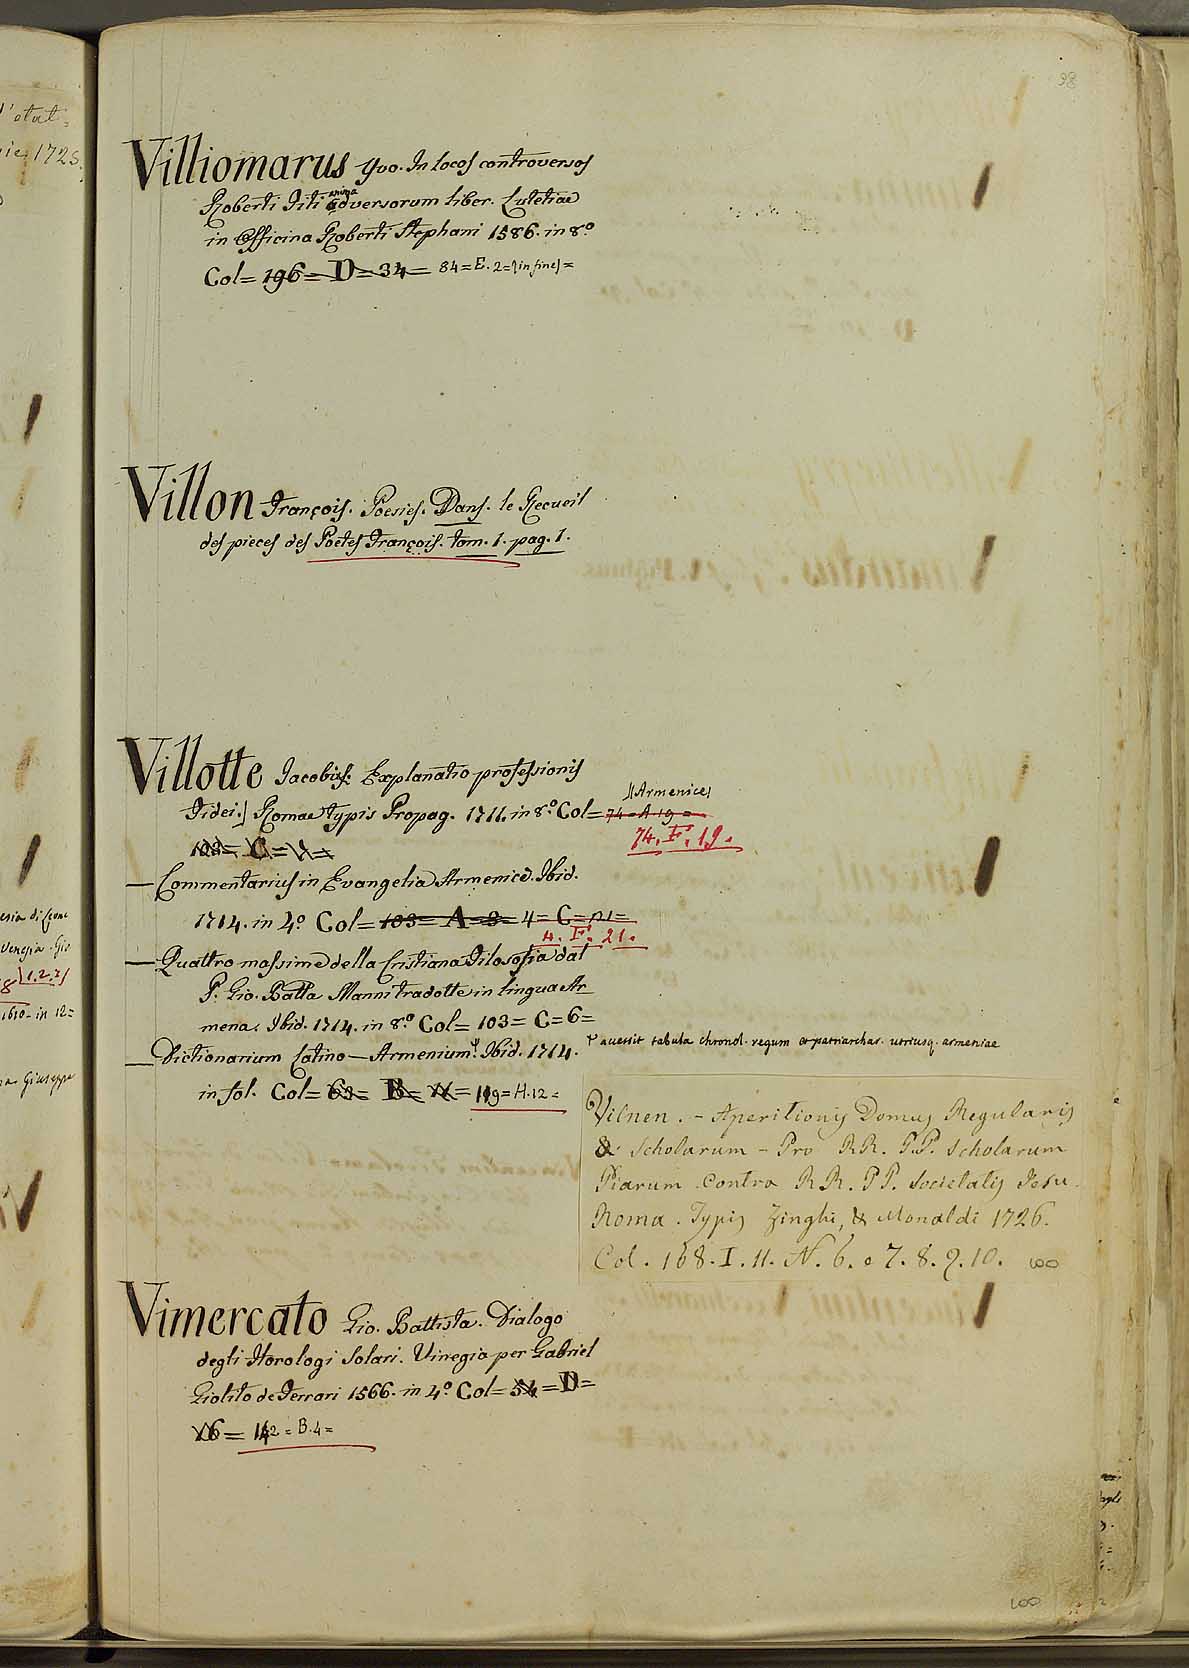 98
Villiomarus Yvo. In locos controversos
Roberti Titi animadversorum liber. Lutetiae
in Officina Roberti Stephani 1586. in 8.o
Col= 196= D= 34= 84= E. 2= (in fine)=
Villon François. Poesies. Dans. le Recueil
des pieces des Poetes François. tom. 1. pag. 1.
Villotte Jacobus. Explanatio professionis
Fidei.] Romae typis Propag. 1711. in 8.o Col= 74= A. 19=
[Armenice]
74. F. 19.
103= C=
— Commentarius in Evangelia Armenice. Ibid.
1714. in 4.o Col= 103= A= 8= 4= C= 21=
4. F. 21.
— Quattro massime della Cristiana Filosofia dal
P. Gio. Batta Manni tradotte in lingua Ar
mena. Ibid. 1714. in 8.o Col= 103= C= 6=
— Dictionarium Latino—Armenium. Ibid. 1714.
accessit tabula chronol. regum et patriarchar. utriusq. armeniae
in fol. Col= 63= B= = 119= H. 12=
Vilnen. - Aperitionis Domus Regularis
& Scholarum - Pro RR. P.P. Scholarum
Piarum Contra RR. PP. Societatis Jesu.
Roma. Typis Zinghi, & Monaldi 1726.
Col. 168. I. 11. N. 6. e 7. 8. 9. 10.
Vimercato Gio. Battista. Dialogo
degli Horologi Solari. Vinegia per Gabriel
Giolito de Ferrari 1566. in 4.o Col= 54= D=
= 142= B. 4=
l'etat=
1725.
Venezia. Gio
1. 2. 3
1610- in 12=
Giuseppe
100